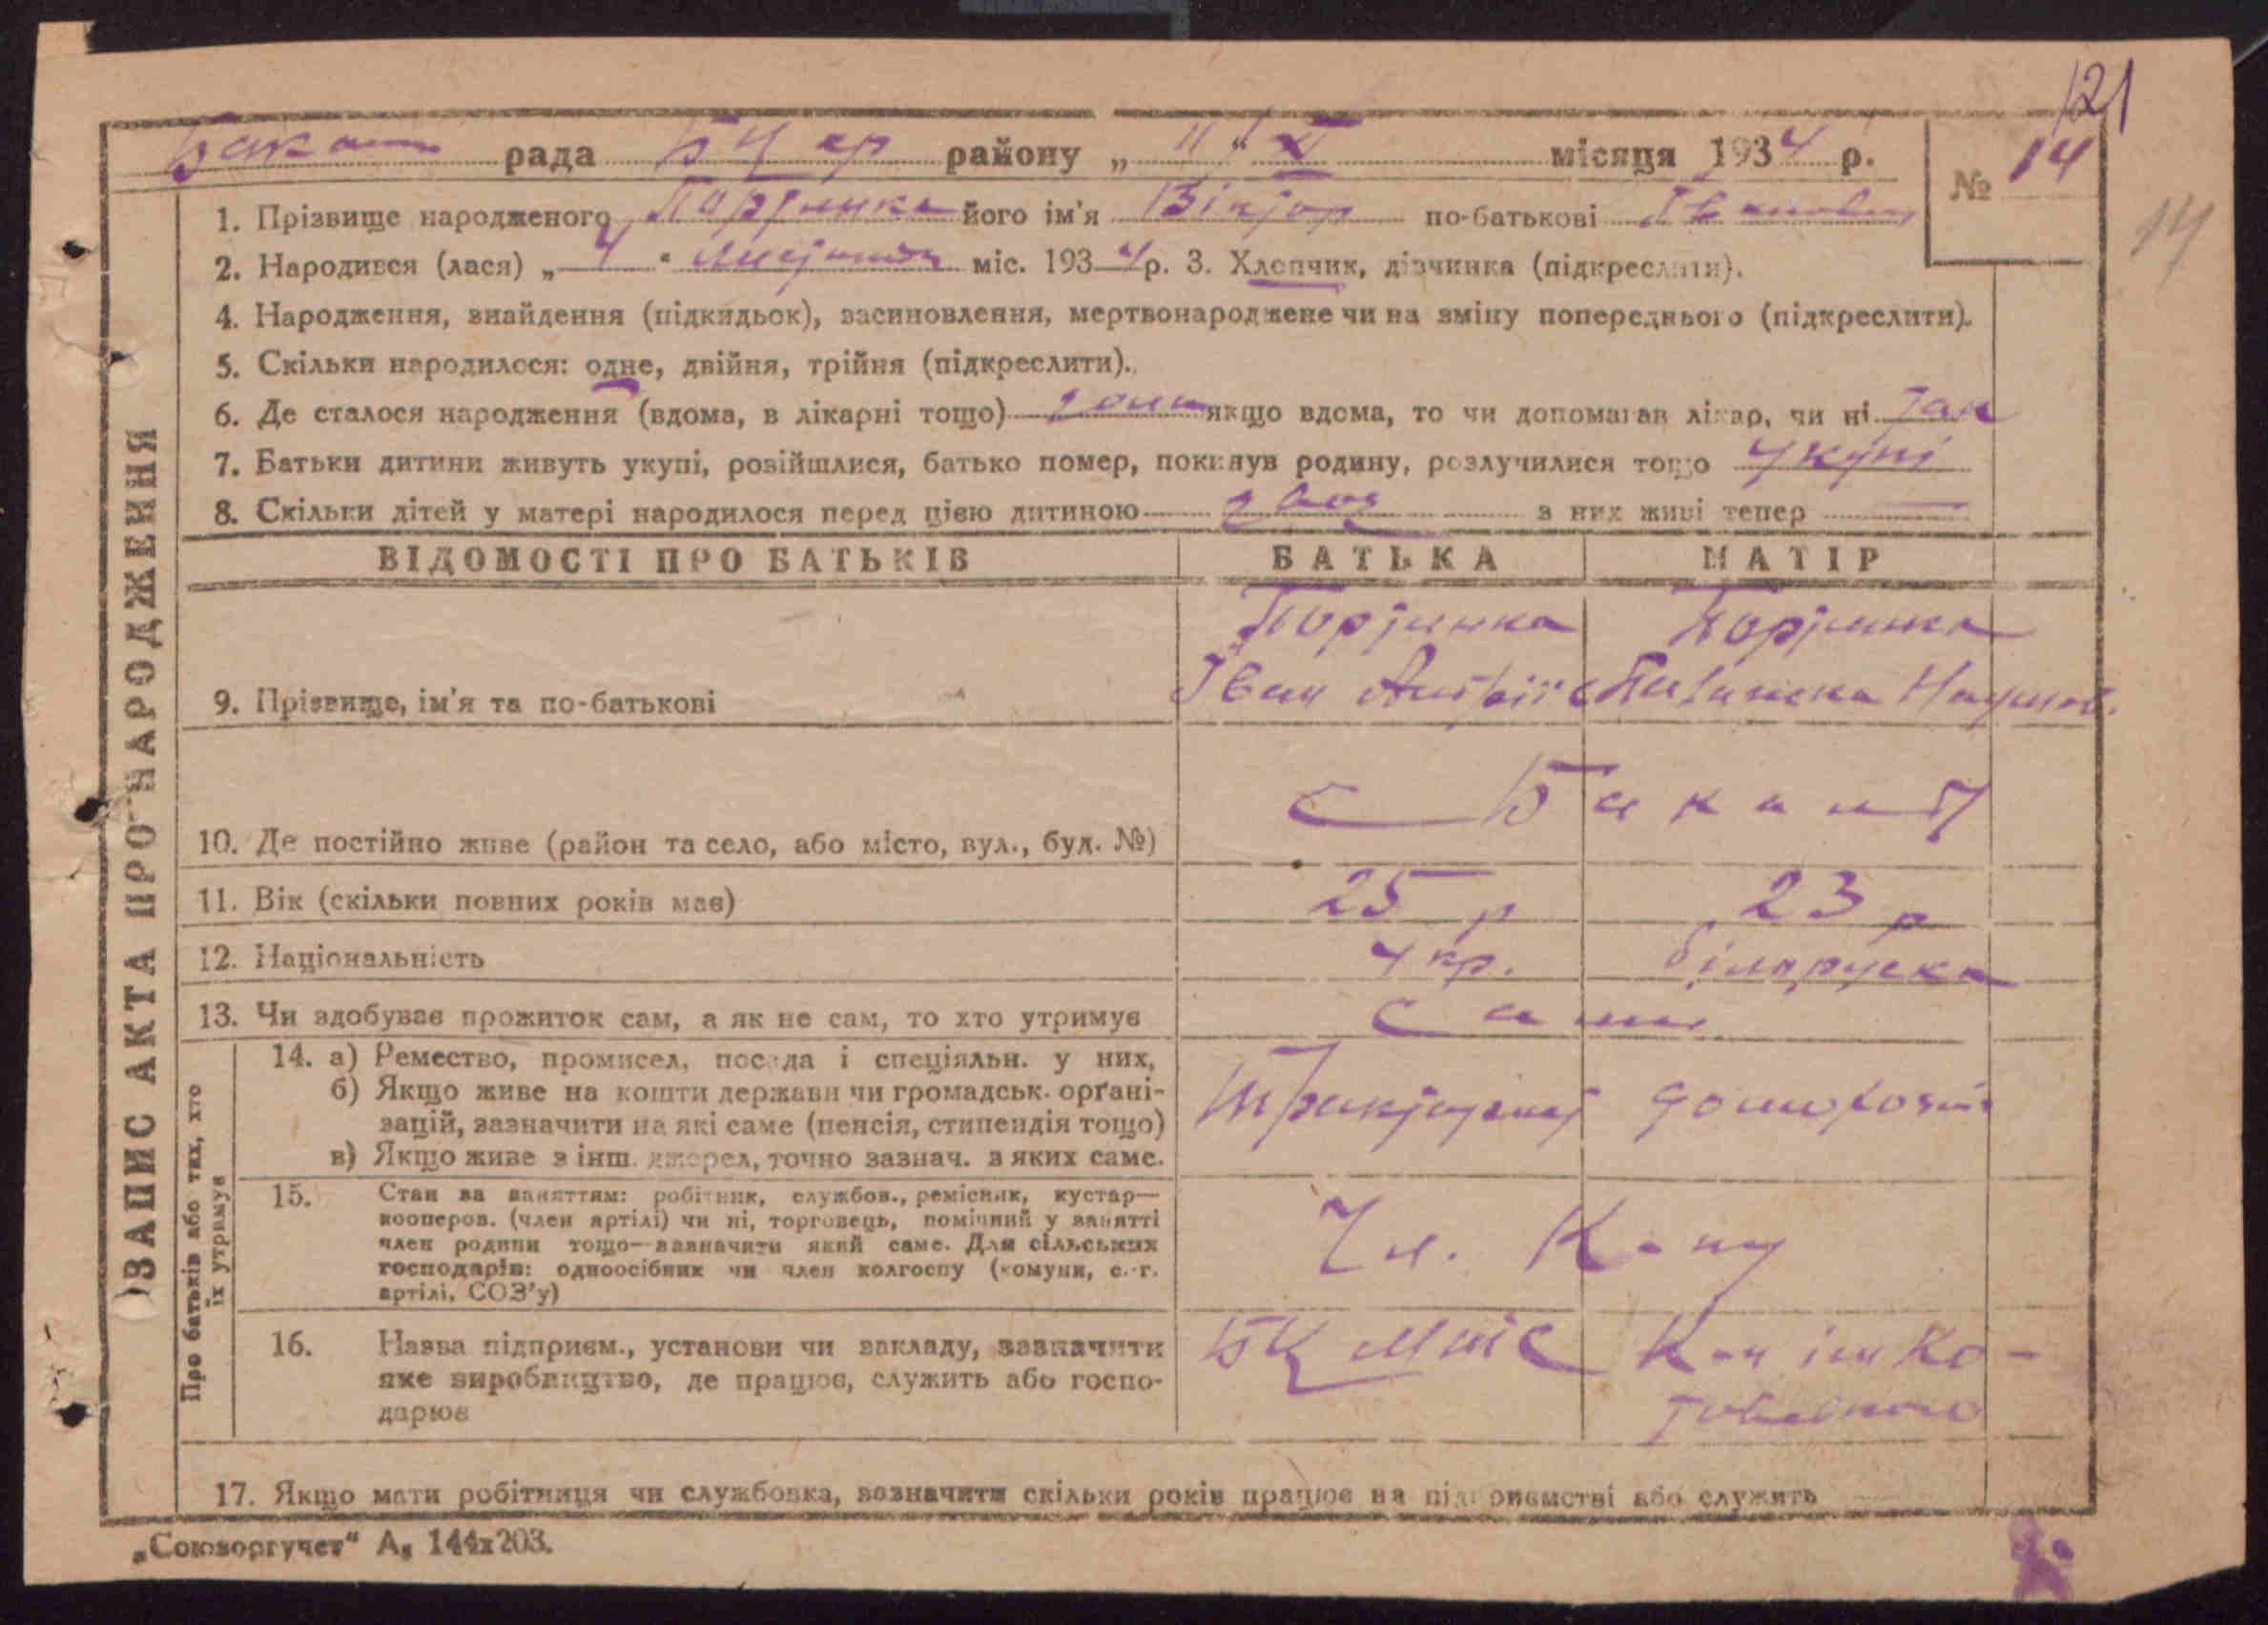 121
Бакан рада БЦер району „ 11 “ XI місяця 1934 р.
№ 14
14
1. Прізвище народженого його ім'я Віктор по-батькові Іванович
2. Народився (лася) „ 4 “ міс. 1934 р. 3. Хлопчик, дівчинка (підкреслити).
4. Народження, знайдення (підкидьок), засиновлення, мертвонароджене чи на зміну попереднього (підкреслити).
5. Скільки народилося: одне, двійня, трійня (підкреслити).
6. Де сталося народження (вдома, в лікарні тощо) дома якщо вдома, то чи допомагав лікар, чи ні так
7. Батьки дитини живуть укупі, розійшлися, батько помер, покинув родину, розлучилися тощо укупі
8. Скільки дітей у матері народилося перед цією дитиною двоє з них живі тепер —
ВІДОМОСТІ ПРО БАТЬКІВ БАТЬКА МАТІР
Портянка Портянка
9. Прізвище, ім'я та по-батькові Іван Наумов.
10. Де постійно живе (район та село, або місто, вул., буд. №) с Бакани
11. Вік (скільки повних років має) 25 р 23 р
12. Національність укр. біларуска
13. Чи здобуває прожиток сам, а як не сам, то хто утримує сами
14. а) Ремество, промисел, посада і спеціяльн. у них,
б) Якщо живе на кошти держави чи громадськ. орґані-
зацій, зазначити на які саме (пенсія, стипендія тощо)
в) Якщо живе з інш. джерел, точно зазнач. з яких саме.
15. Стан за заняттям: робітник, службов., ремісник, кустар—
кооперов. (член артілі) чи ні, торговець, помічний у занятті
член родини тощо—зазначити який саме. Для сільських
господарів: одноосібник чи член колгоспу (комуни, с.-г.
артілі, СОЗ'у)
Чл. К-ну
16. Назва підприєм., установи чи закладу, зазначити
яке виробництво, де працює, служить або госпо-
дарює
БЦ МТС К-н ім Ко-
товського
17. Якщо мати робітниця чи службовка, зазначити скільки років працює на підприємстві або служить
ЗАПИС АКТА ПРО НАРОДЖЕННЯ
Про батьків або тих, хто
їх утримує
„Союзоргучет“ А₆ 144х203.